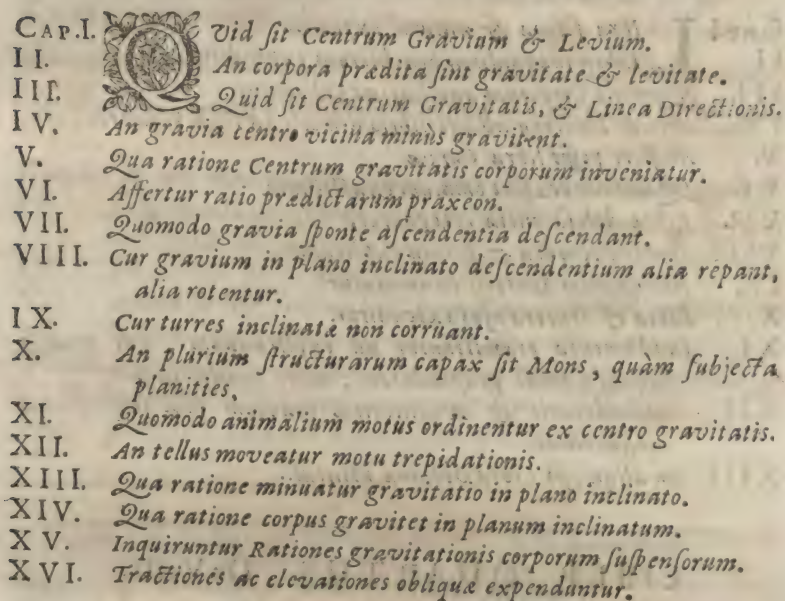 CAP.I. Quid ſit Centrum Gravium & Levium.
II. An corpora prædita ſint gravitate & levitate.
III. Quid ſit Centrum Gravitatis, & Linea Directionis.
IV. An gravia centro vicina minùs gravitent.
V. Qua ratione Centrum gravitatis corporum inveniatur.
VI. Affertur ratio prædictarum praxeon.
VII. Quomodo gravia ſponte aſcendentia deſcendant.
VIII. Cur gravium in plano inclinato deſcendentium alia repant,
alia rotentur.
IX. Cur turres inclinatæ non corruant.
X. An plurium ſtructurarum capax ſit Mons, quàm ſubjecta
planities.
XI. Quomodo animalium motus ordinentur ex centro gravitatis.
XII. An tellus moveatur motu trepidationis.
XIII. Qua ratione minuatur gravitatio in plano inclinato.
XIV. Qua ratione corpus gravitet in planum inclinatum.
XV. Inquiruntur Rationes gravitationis corporum ſuſpenſorum.
XVI. Tractiones ac elevationes obliquæ expenduntur.